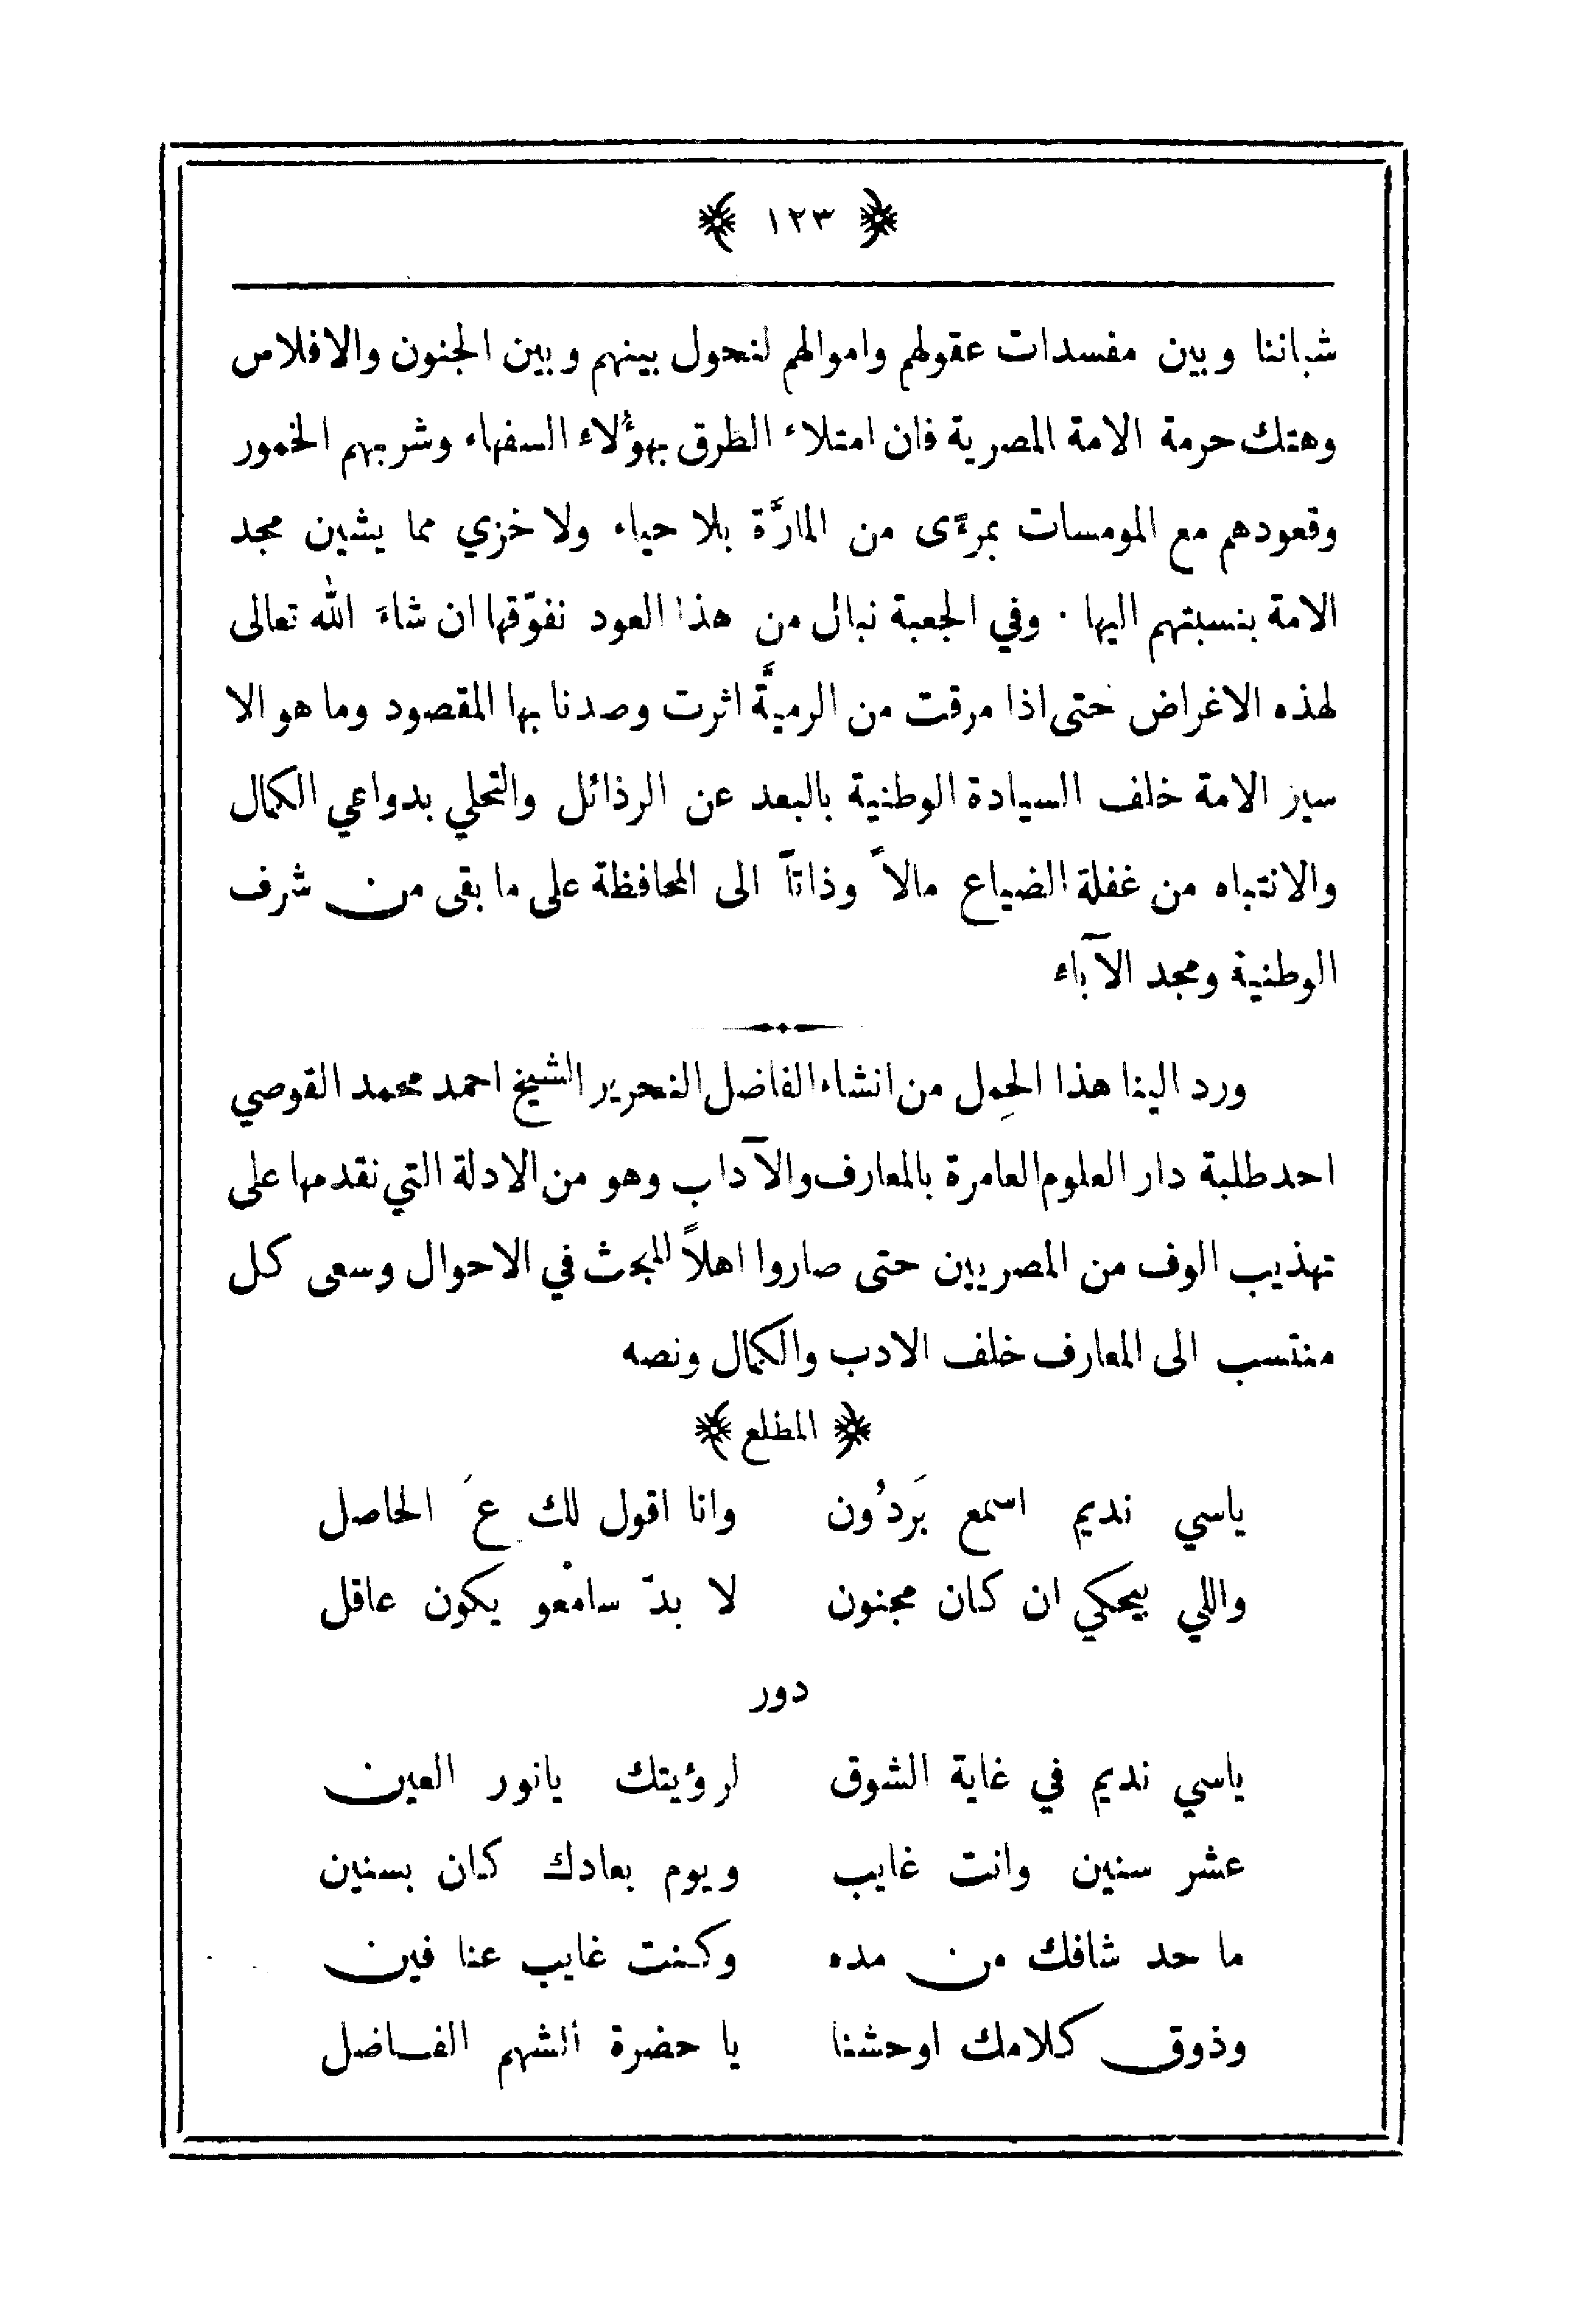 ﴿ ١٢٣ ﴾
شباننا وبين مفسدات عقولهم واموالهم لنحول بينهم وبين الجنون والافلاس
وهتك حرمة الامة المصرية فان امتلاء الطرق بهؤلاء السفهاء وشربهم الخمور
وقعودهم مع المومسات بمرءًى من المارَّة بلا حياء ولا خزي مما يشين مجد
الامة بنسبتهم اليها · وفي الجعبة نبال من هذا العود نفوّقها ان شاءَ الله تعالى
لهذه الاغراض حتى اذا مرقت من الرميَّة اثرت وصدنا بها المقصود وما هو الا
سير الامة خلف السيادة الوطنية بالبعد عن الرذائل والتحلي بدواعي الكمال
والانتباه من غفلة الضياع مالاً وذاتاً الى المحافظة على ما بقى من شرف
الوطنية ومجد الآباء
ورد الينا هذا الحِمل من انشاء الفاضل النحرير الشيخ احمد محمد القوصي
احد طلبة دار العلوم العامرة بالمعارف والآداب وهو من الادلة التي نقدمها على
تهذيب الوف من المصريين حتى صاروا اهلاً للبحث في الاحوال وسعى كل
منتسب الى المعارف خلف الادب والكمال ونصه
﴿ المطلع ﴾
ياسي نديم اسمع بَردُون وانا اقول لك عَ الحاصل
واللي بيحكي ان كان مجنون لا بدّ سامْعو يكون عاقل
دور
ياسي نديم في غاية الشوق لرؤيتك يانور العين
عشر سنين وانت غايب ويوم بعادك كان بسنين
ما حد شافك من مده وكنت غايب عنا فين
وذوق كلامك اوحشنا يا حضرة الشهم الفاضل